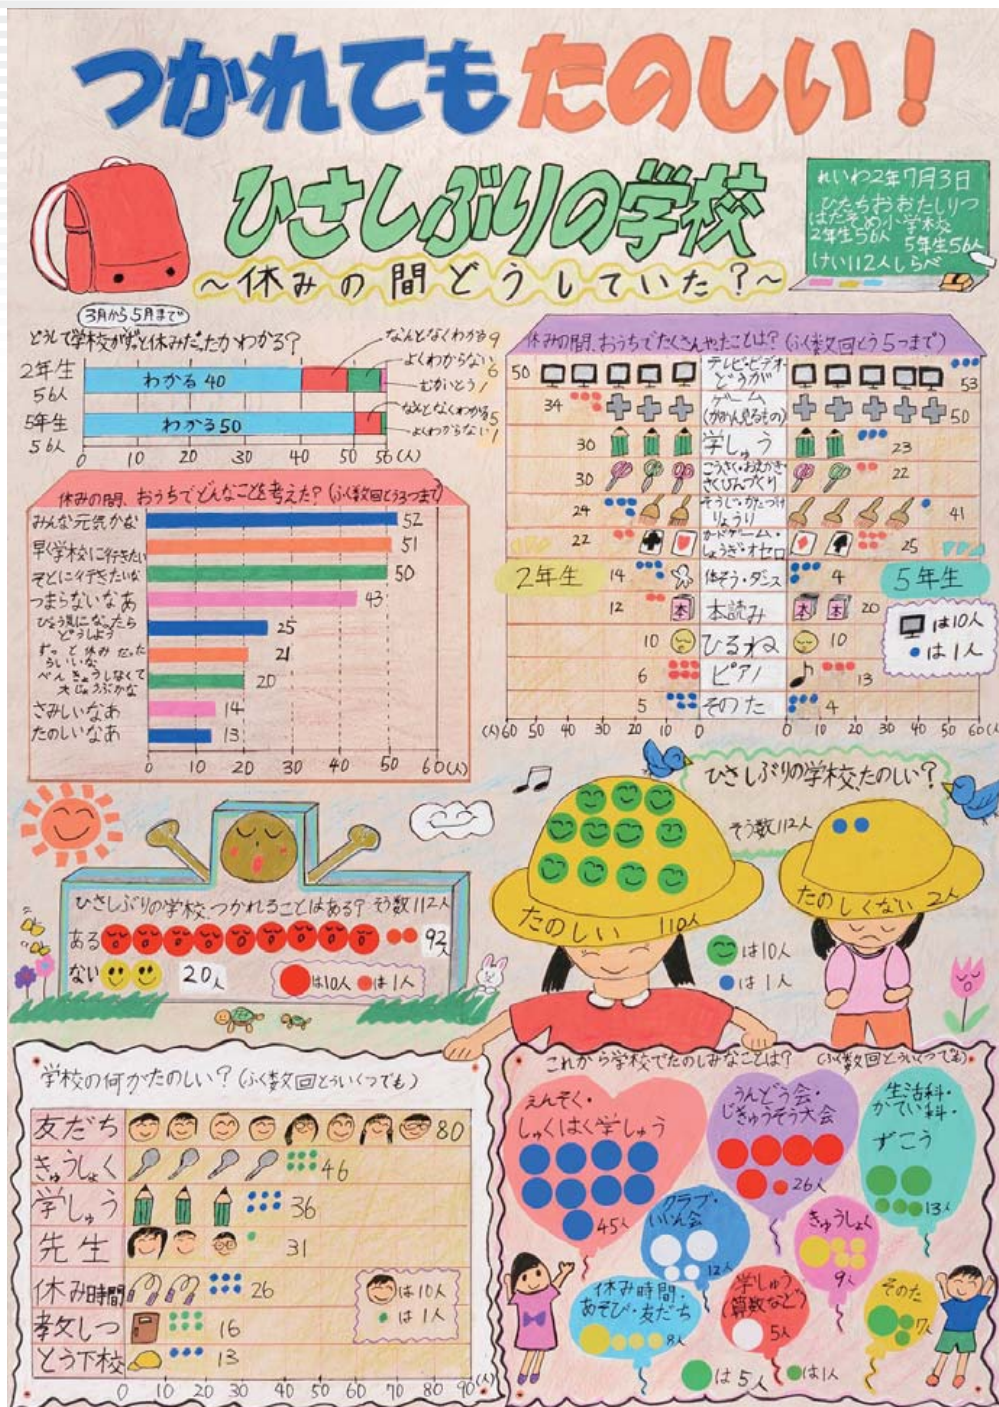 つかれても たのしい!
ひさしぶりの学校
~休みの間どうしていた?~
れいわ2年7月3日
ひたちおおたしりつ
はたそめ小学校
2年生56人 5年生56人
けい112人しらべ
3月から5月まで
どうして学校がずっと休みだったかわかる?
なんとなくわかる 9
よくわからない 6
むかいとう 1
2年生
56人
わかる 40
5年生
56人
わかる 50
なんとなくわかる 5
よくわからない 1
0 10 20 30 40 50 56(人)
休みの間、おうちでどんなことを考えた?(ふく数回とう3つまで)
みんな元気かな 52
早く学校に行きたい 51
そとに行きたいな 50
つまらないなあ 43
びょう気になったら
どうしよう 25
ずっと休みだった
らいいな 21
べんきょうしなくて
大じょうぶかな 20
さみしいなあ 14
たのしいなあ 13
0 10 20 30 40 50 60(人)
休みの間、おうちでたくさんやったことは?(ふく数回とう5つまで)
50 テレビ・ビデオ・
どうが 53
34 ゲーム
(がめん見るもの) 50
30 学しゅう 23
30 こうさく・おえかき・
さくひんづくり 22
24 そうじ・かたづけ
りょうり 41
22 カードゲーム・
しょうぎ・オセロ 25
2年生 14 体そう・ダンス 4 5年生
12 本 本読み 本 本 20
10 ひるね 10
6 ピアノ 13
5 そのた 4
は10人
は1人
(人)60 50 40 30 20 10 0 0 10 20 30 40 50 60(人)
ひさしぶりの学校、たのしい?
そう数112人
たのしい 110人
たのしくない 2人
は10人
は1人
ひさしぶりの学校、つかれることはある? そう数112人
ある 92人
ない 20人
は10人 は1人
学校の何がたのしい?(ふく数回とういくつでも)
友だち 80
きゅうしょく 46
学しゅう 36
先生 31
休み時間 26
教しつ 16
とう下校 13
は10人
は1人
0 10 20 30 40 50 60 70 80 90(人)
これから学校でたのしみなことは?(ふく数回とういくつでも)
えんそく・
しゅくはく学しゅう
45人
うんどう会・
じきゅうそう大会
26人
生活科・
かてい科・
ずこう
13人
クラブ・
いいん会
12人
きゅうしょく
9人
休み時間・
あそび・友だち
8人
学しゅう
(算数など)
5人
そのた
7人
は5人 は1人